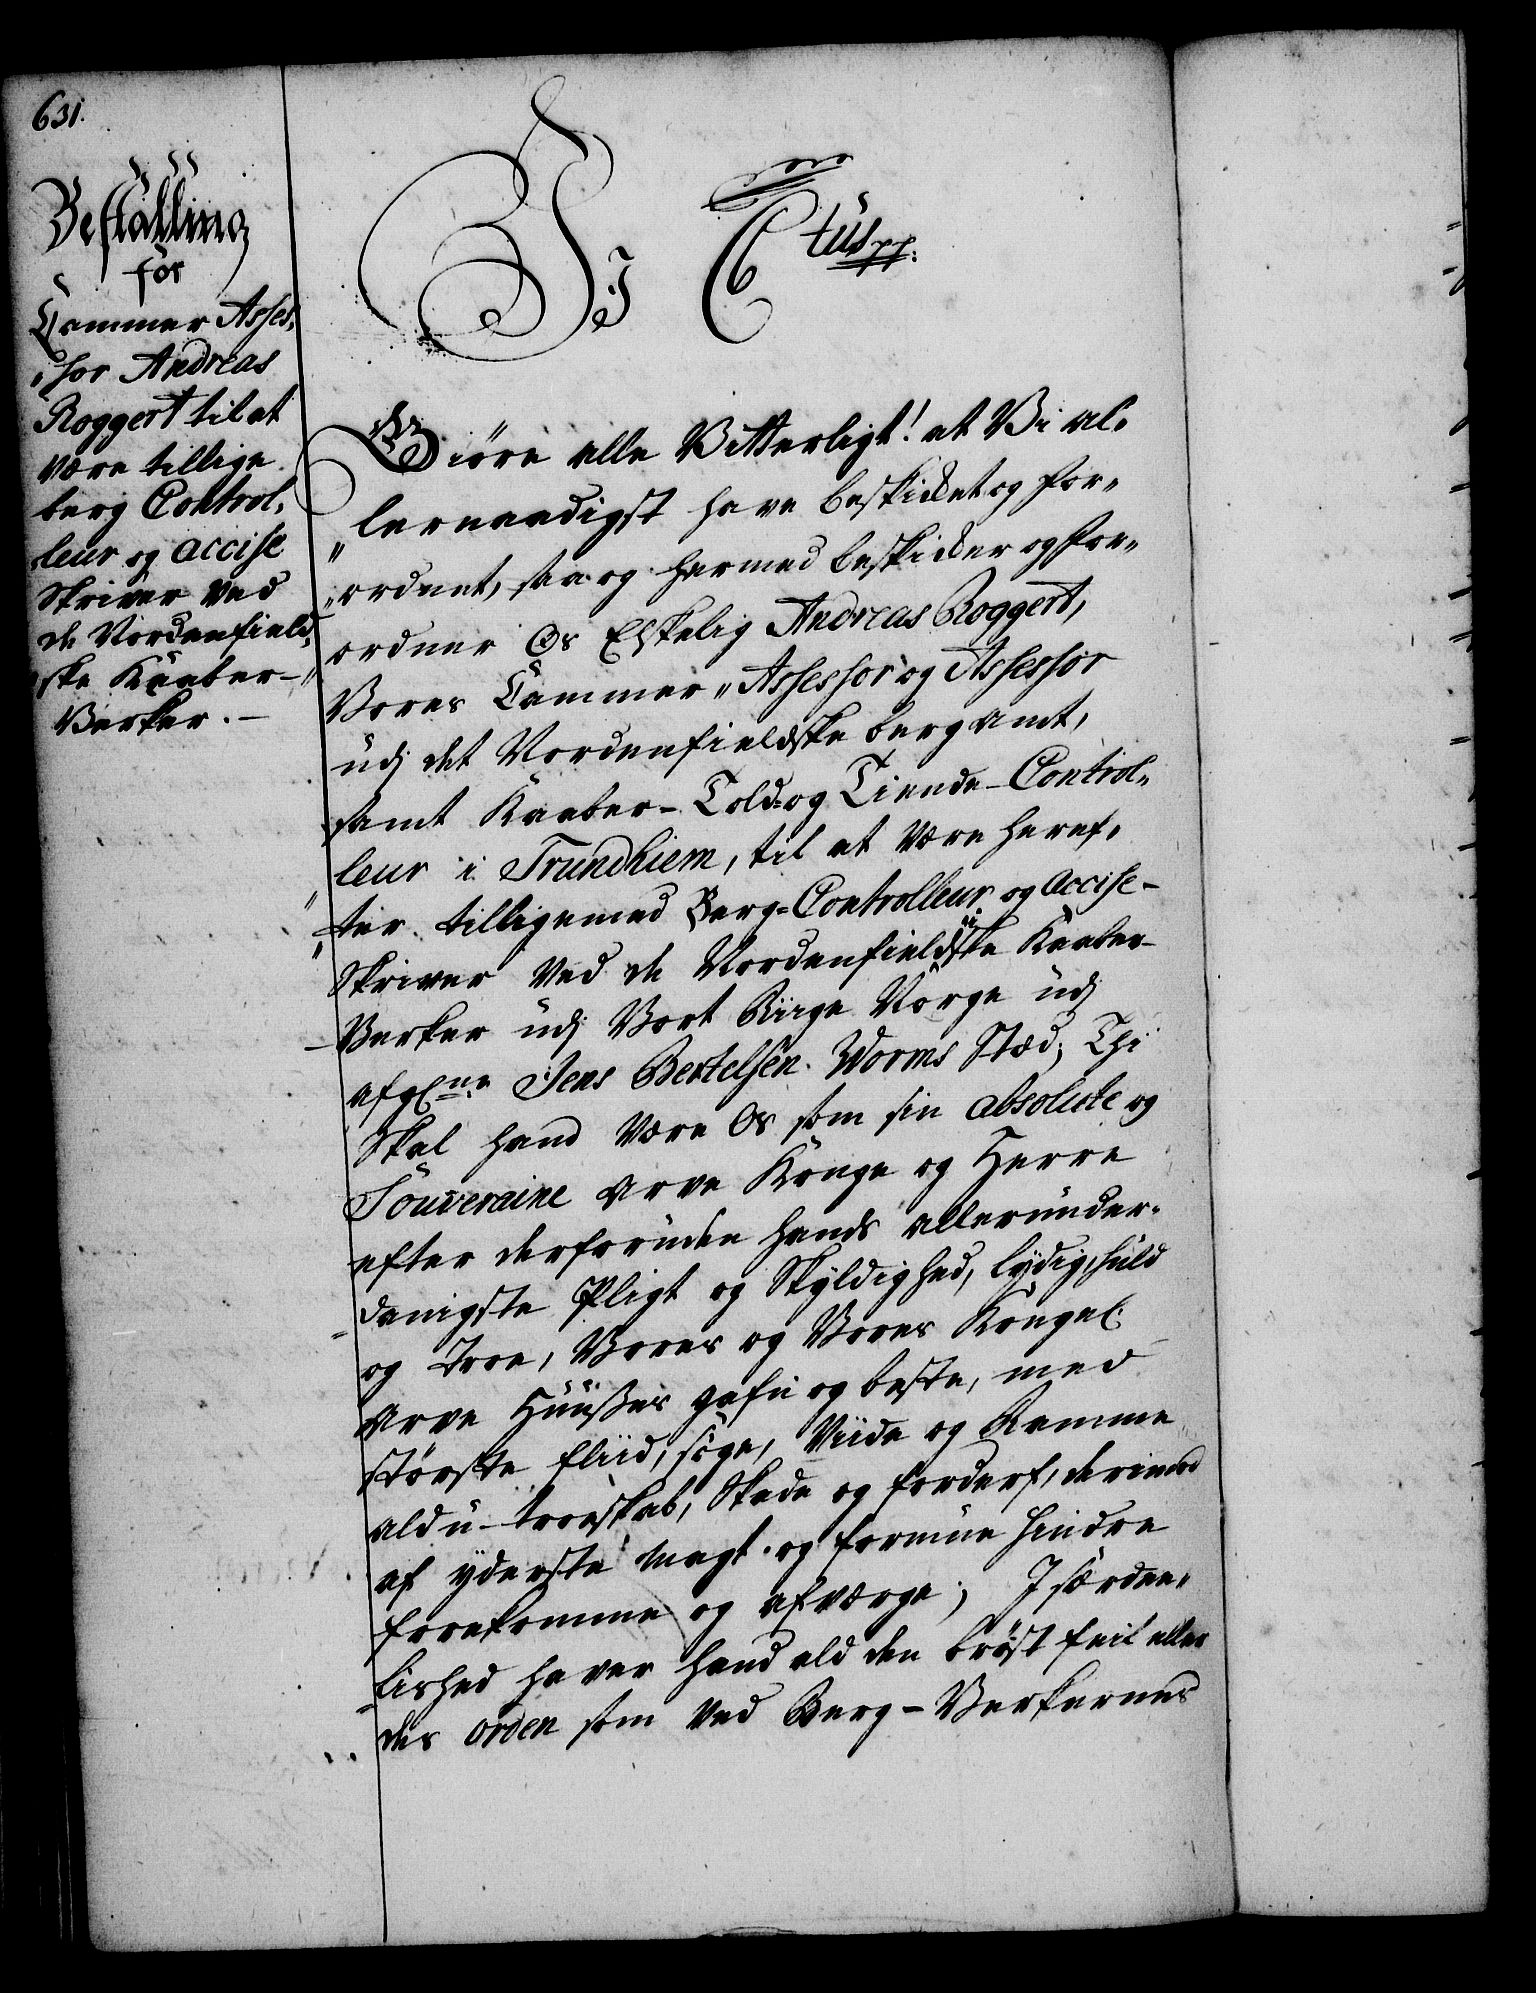 631.
Beställing
for
Cammer Asses„
„sor Andreas
Roggert til at
være tillige
berg Control„
„leur og accise
Skriver ved
de Nordenfield„
„ske Kaaber-
Verker. —
Vi C tus pp:
Giöre alle Vitterligt! at Vi al„
„lernaadigst have beskicket og for„
„ordnet, saa og hermed beskicker og for„
ordner Os Elskelig Andreas Roggert,
Vores Cammer„Assessor og Assessor
udj det Nordenfieldske berg amt,
samt Kaaber-Told- og Tiende-Control„
„leur i Trundhiem, til at være heref„
„ter tilligemed Berg-Controlleur og accise-
Skriver ved de Nordenfieldske Kaaber-
-Verker udj Vort Riige Norge udj
afgl:ne Jens Bertelsen Worms Stæd; Thi
Skal hand være Os som sin absolute og
Souveraine Arve Konge og Herre
efter derforuden hands allerunder-
-danigste Pligt og Skyldighed, lydig, huld
og troe, Vores og Vores Kongel:
Arve Huußes gafn og beste, med
största fliid, söge, Viide og Ramme
ald u-troeskab, Skade og forderf, derimod
af yderste magt og formue hindre
forekomme og afværge; J særdee„
-lished haver hand ald den bröst feil eller
des orden som ved Berg-Verkernes